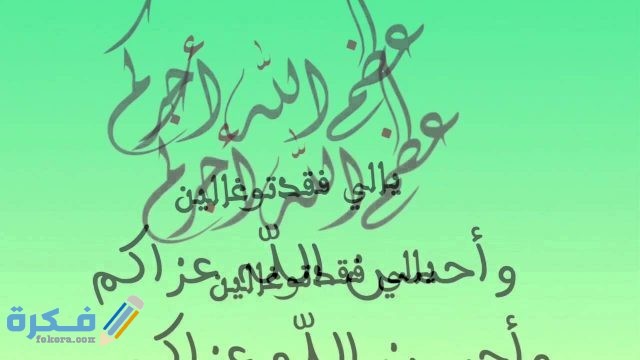 عظم الله أجركم
عظم الله أجركم
يالي فقدتو غالين
وأحسن الله عزاكم
يالي فقدتو غالين
وأحسن الله عزاكم
فكرة
fokera.com